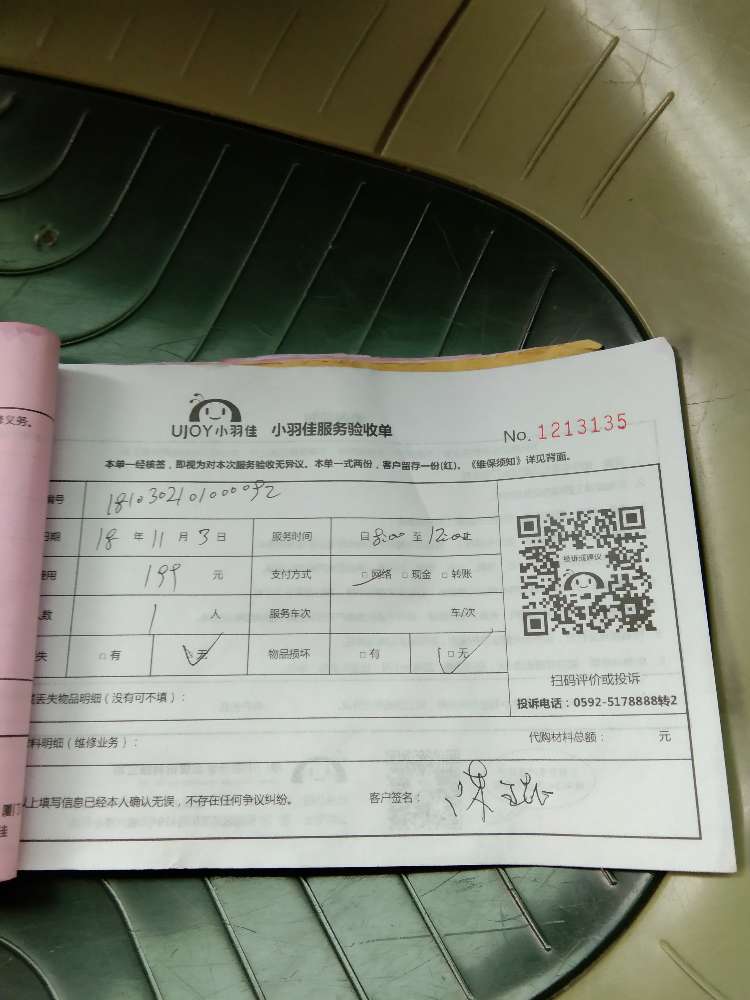 UJOY小羽佳 小羽佳服务验收单
No. 1213135
本单一经核签，即视为对本次服务验收无异议。本单一式两份，客户留存一份(红)。《维保须知》详见背面。
编号 1810302101000092
日期 18 年 11 月 3 日 服务时间 自 8:00 至 12:00止
费用 199 元 支付方式 □网络 □现金 □转账
人数 1 人 服务车次 车/次
失 □有 □无 物品损坏 □有 □无
投诉或建议
扫码评价或投诉
投诉电话：0592-5178888转2
或丢失物品明细（没有可不填）：
料明细（维修业务）： 代购材料总额： 元
以上填写信息已经本人确认无误，不存在任何争议纠纷。 客户签名：
义务。
厦门
佳